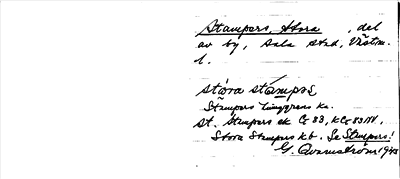 Stampers, Stora, del
av by, Sala stad, Västm.
l.
stóra stámpas
Stampers Ljunggrens ka.
St. Stampers ek Cs 83, KCs 83 NV.
Stora Stampers kb. Se Stampers!
G. Qvarnström 1943